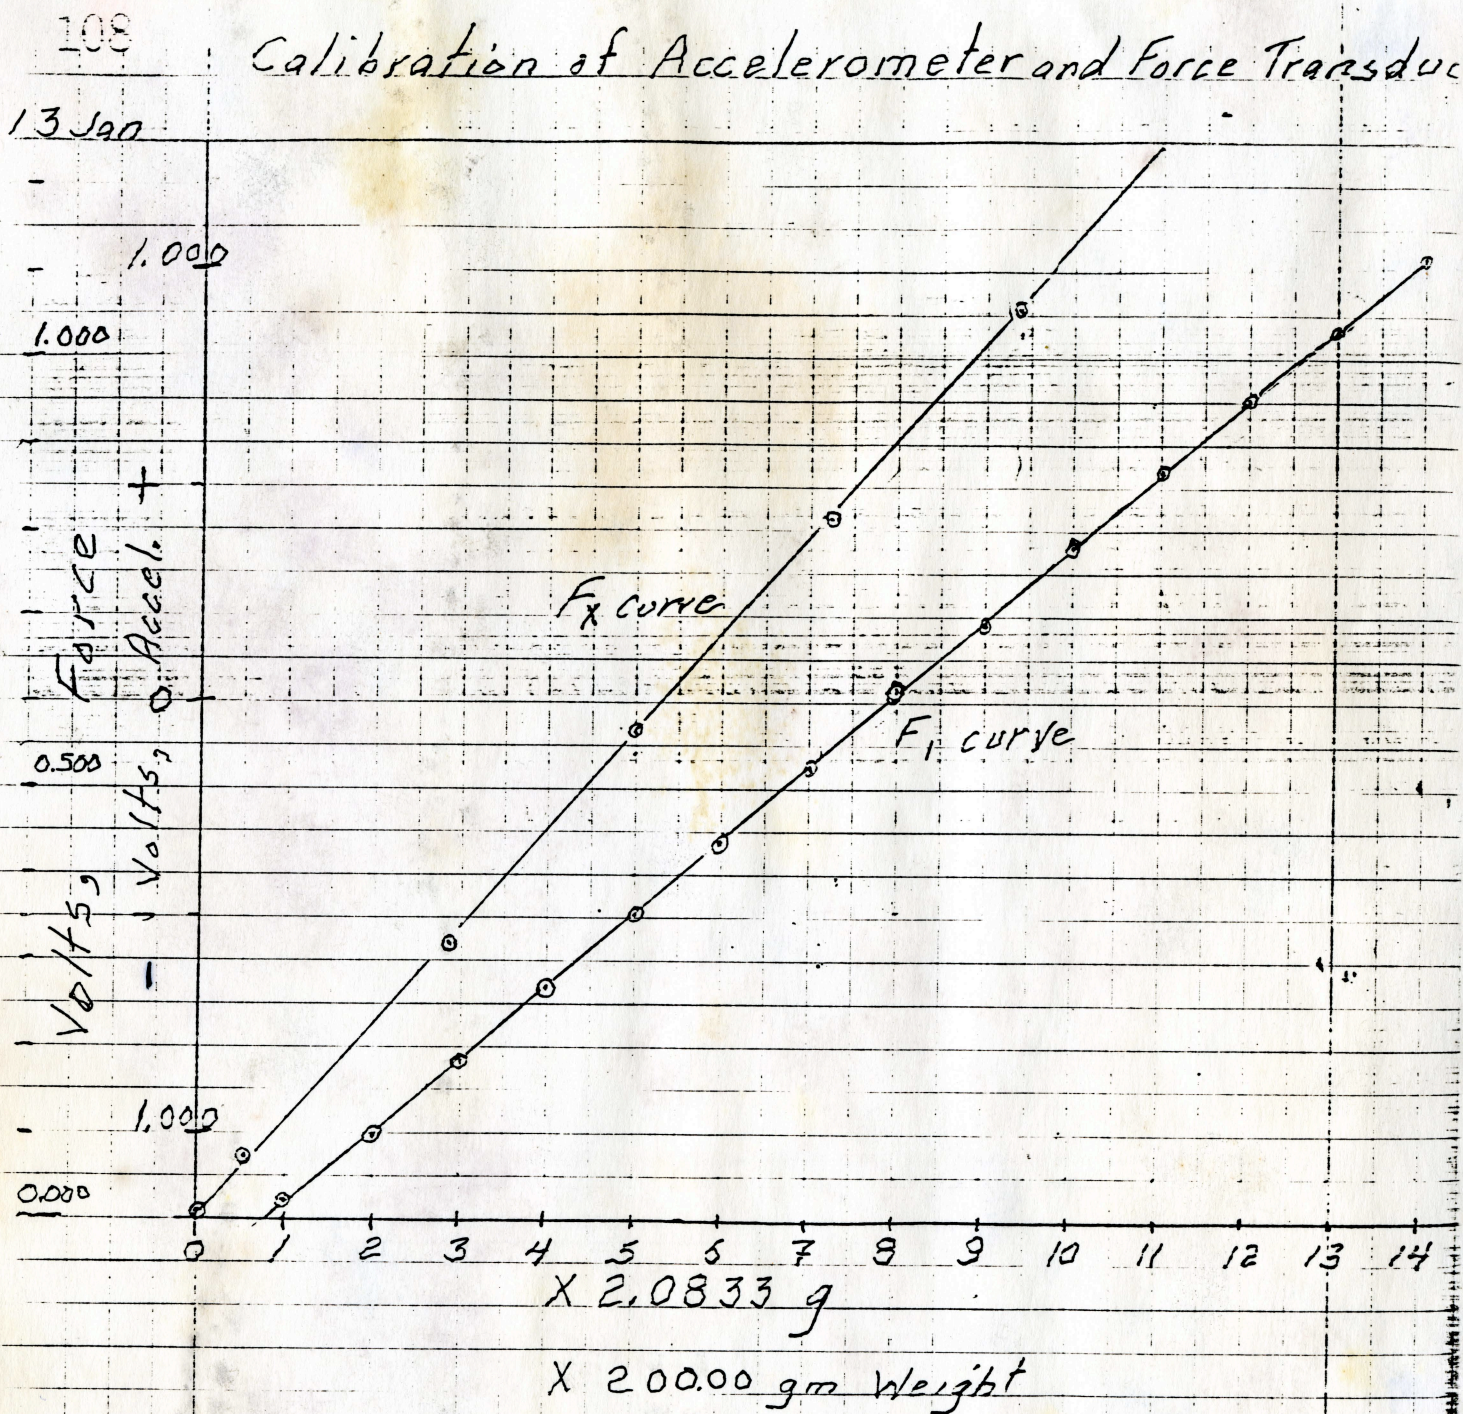 108
Calibration of Accelerometer and Force Transduc
13 Jan
1.000
1.000
Volts, Force
- Volts, Accel. +
0
Fx curve
F1 curve
0.500
1.000
0.000
0 1 2 3 4 5 6 7 8 9 10 11 12 13 14
X 2.0833 g
X 200.00 gm Weight